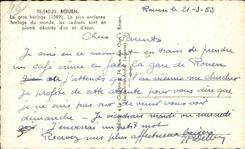 76.540.22. ROUEN.
Le gros horloge (1389). La plus ancienne
horloge du monde, les cadrans sont en
plomb décorés d'or et d'azur.
Rouen le 21-3-53
Chers Parents
Je suis en ce moment en train de prendre
un café crème en la gare de Rouen.
j'attends que l'on vienne me chercher
Je profite de cela pour vous dire que
je ne suis pas sûr de venir vous voir
dimanche - Je viendrai mardi ou mercredi
J'enverrai un petit mot.
Recevez mes plus affectueux baisers